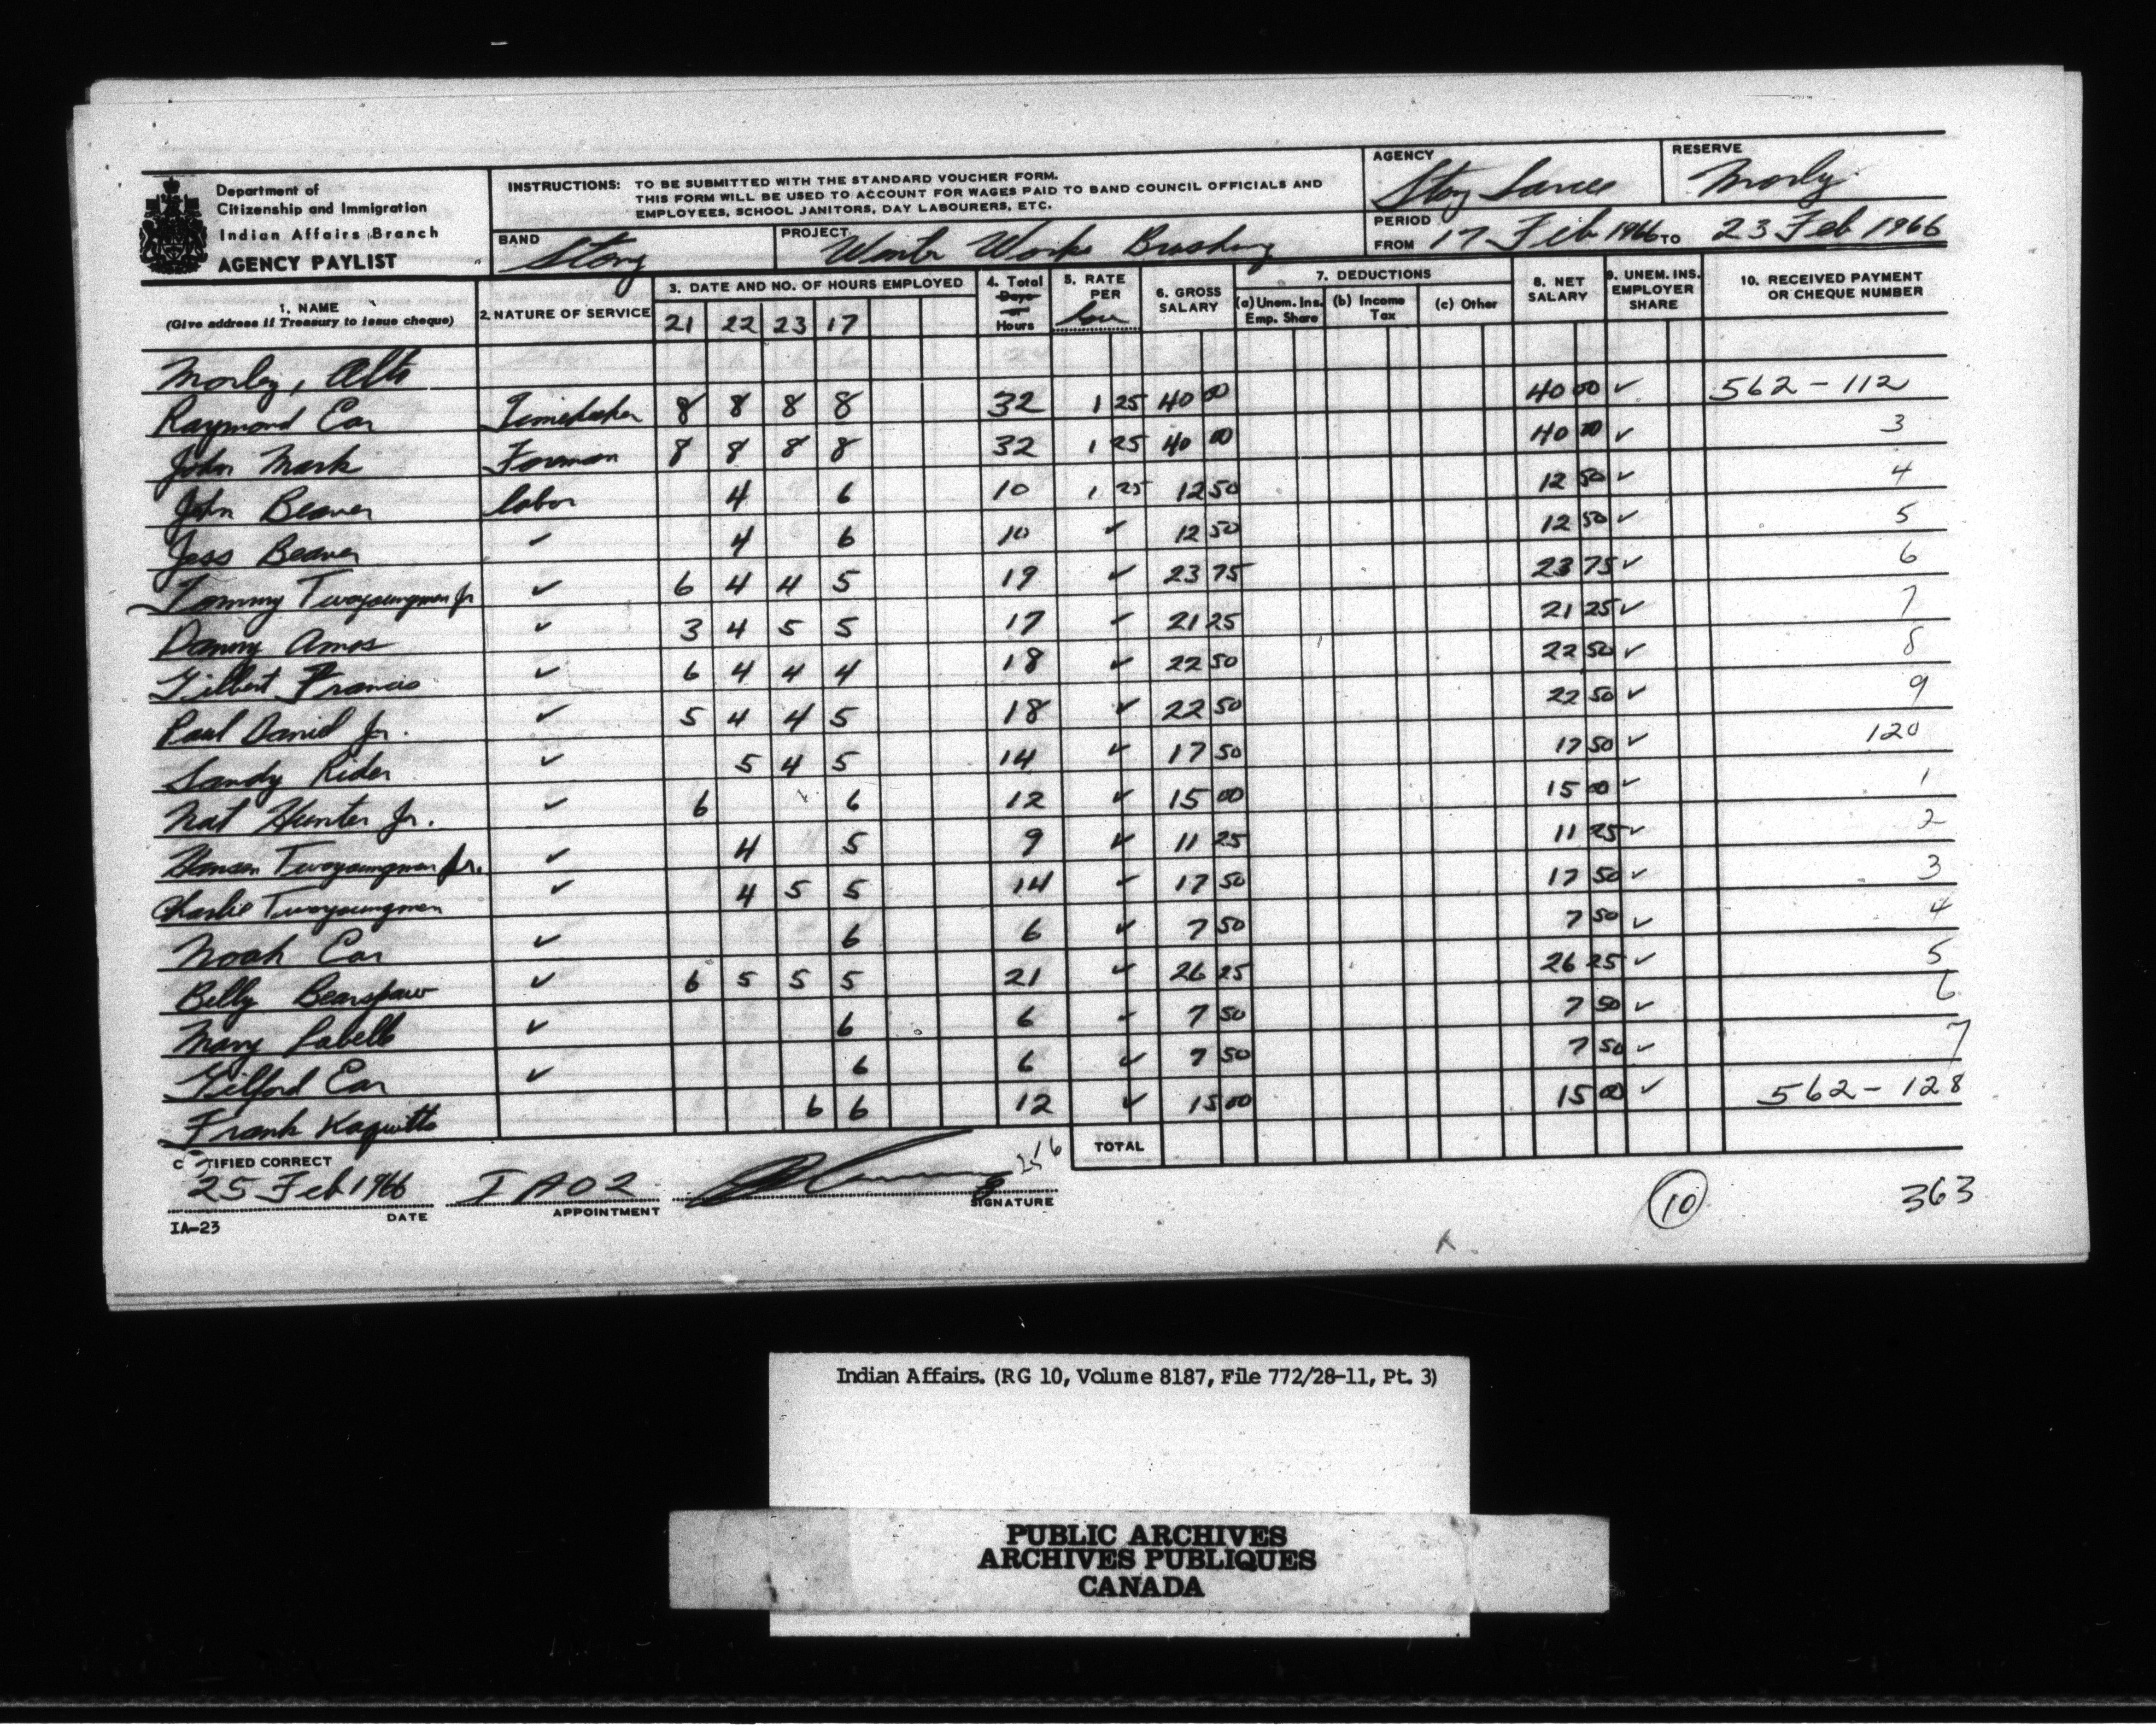 Department of
Citizenship and Immigration
Indian Affairs Branch
AGENCY PAYLIST
INSTRUCTIONS: TO BE SUBMITTED WITH THE STANDARD VOUCHER FORM.
THIS FORM WILL BE USED TO ACCOUNT FOR WAGES PAID TO BAND COUNCIL OFFICIALS AND
EMPLOYEES, SCHOOL JANITORS, DAY LABOURERS, ETC.
AGENCY Stony Sarcee
RESERVE Morley
BAND Stony
PROJECT Winter Works Brushing
PERIOD FROM 17 Feb 1966 TO 23 Feb 1966
1. NAME (Give address if Treasury to issue cheque)
2. NATURE OF SERVICE
3. DATE AND NO. OF HOURS EMPLOYED
21 22 23 17
4. Total Days or Hours
5. RATE PER hour
6. GROSS SALARY
7. DEDUCTIONS
(a) Unem. Ins. Emp. Share
(b) Income Tax
(c) Other
8. NET SALARY
9. UNEM. INS. EMPLOYER SHARE
10. RECEIVED PAYMENT OR CHEQUE NUMBER
Morley, Alta
Raymond Ear Timekeeper 8 8 8 8 32 1 25 40 00 40 00 ✓ 562-112
John Mark Forman 8 8 8 8 32 1 25 40 00 40 00 ✓ 3
John Beaver labor 4 6 10 1 25 12 50 12 50 ✓ 4
Jess Beaver ✓ 4 6 10 ✓ 12 50 12 50 ✓ 5
Tommy Twoyoungmen Jr ✓ 6 4 4 5 19 ✓ 23 75 23 75 ✓ 6
Danny Amos ✓ 3 4 5 5 17 ✓ 21 25 21 25 ✓ 7
Gilbert Francis ✓ 6 4 4 4 18 ✓ 22 50 22 50 ✓ 8
Paul Daniel Jr. ✓ 5 4 4 5 18 ✓ 22 50 22 50 ✓ 9
Sandy Rider ✓ 5 4 5 14 ✓ 17 50 17 50 ✓ 120
Nat Hunter Jr. ✓ 6 6 12 ✓ 15 00 15 00 ✓ 1
Hanson Twoyoungmen Jr. ✓ 4 5 9 ✓ 11 25 11 25 ✓ 2
Charlie Twoyoungmen ✓ 4 5 5 14 ✓ 17 50 17 50 ✓ 3
Noah Ear ✓ 6 6 ✓ 7 50 7 50 ✓ 4
Billy Bearspaw ✓ 6 5 5 5 21 ✓ 26 25 26 25 ✓ 5
Mary Labelle ✓ 6 6 ✓ 7 50 7 50 ✓ 6
Gilford Ear ✓ 6 6 ✓ 7 50 7 50 ✓ 7
Frank Kaquitts 6 6 12 ✓ 15 00 15 00 ✓ 562-128
TOTAL
CERTIFIED CORRECT
25 Feb 1966 IA02
DATE APPOINTMENT SIGNATURE
IA-23
10 363
Indian Affairs. (RG 10, Volume 8187, File 772/28-11, Pt. 3)
PUBLIC ARCHIVES
ARCHIVES PUBLIQUES
CANADA